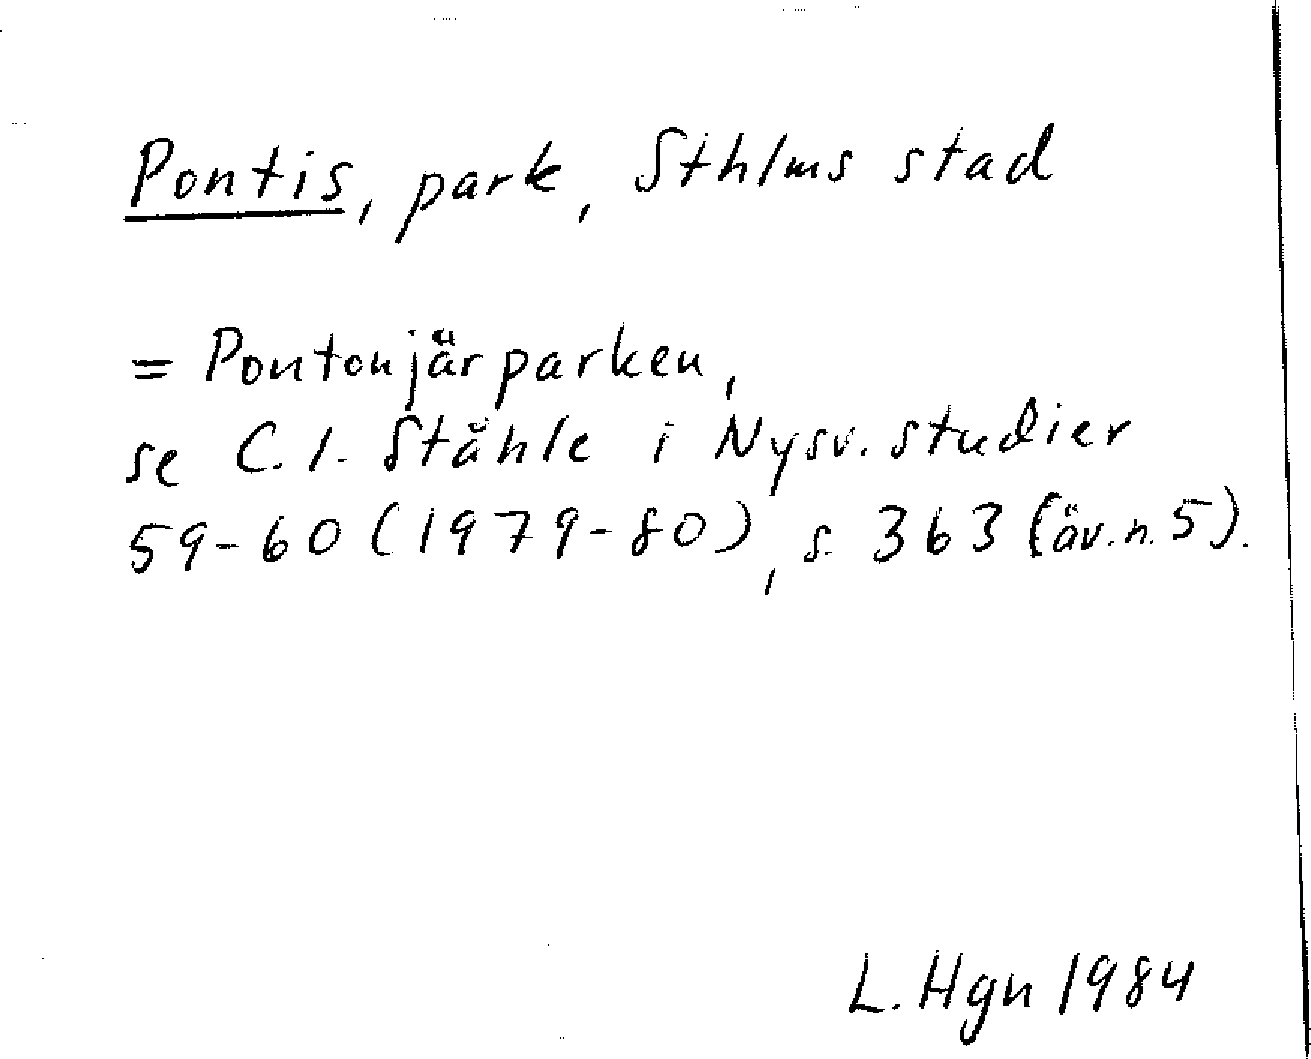 Pontis, park, Sthlms stad
= Pontonjärparken,
se C. I. Ståhle i Nysv. studier
59-60 (1979-80), s. 363 (äv. n. 5).
L. Hgn 1984